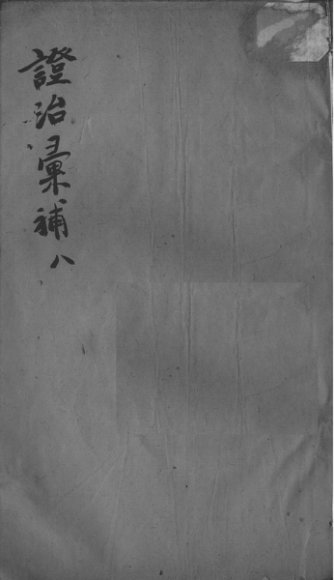 證治彙補八